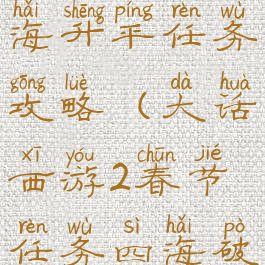 hǎi shēng píng rèn wù
海升平任务
gōng lüè dà huà
攻略（大话
xī yóu chūn jié
西游2春节
rèn wù sì hǎi pò
任务四海破